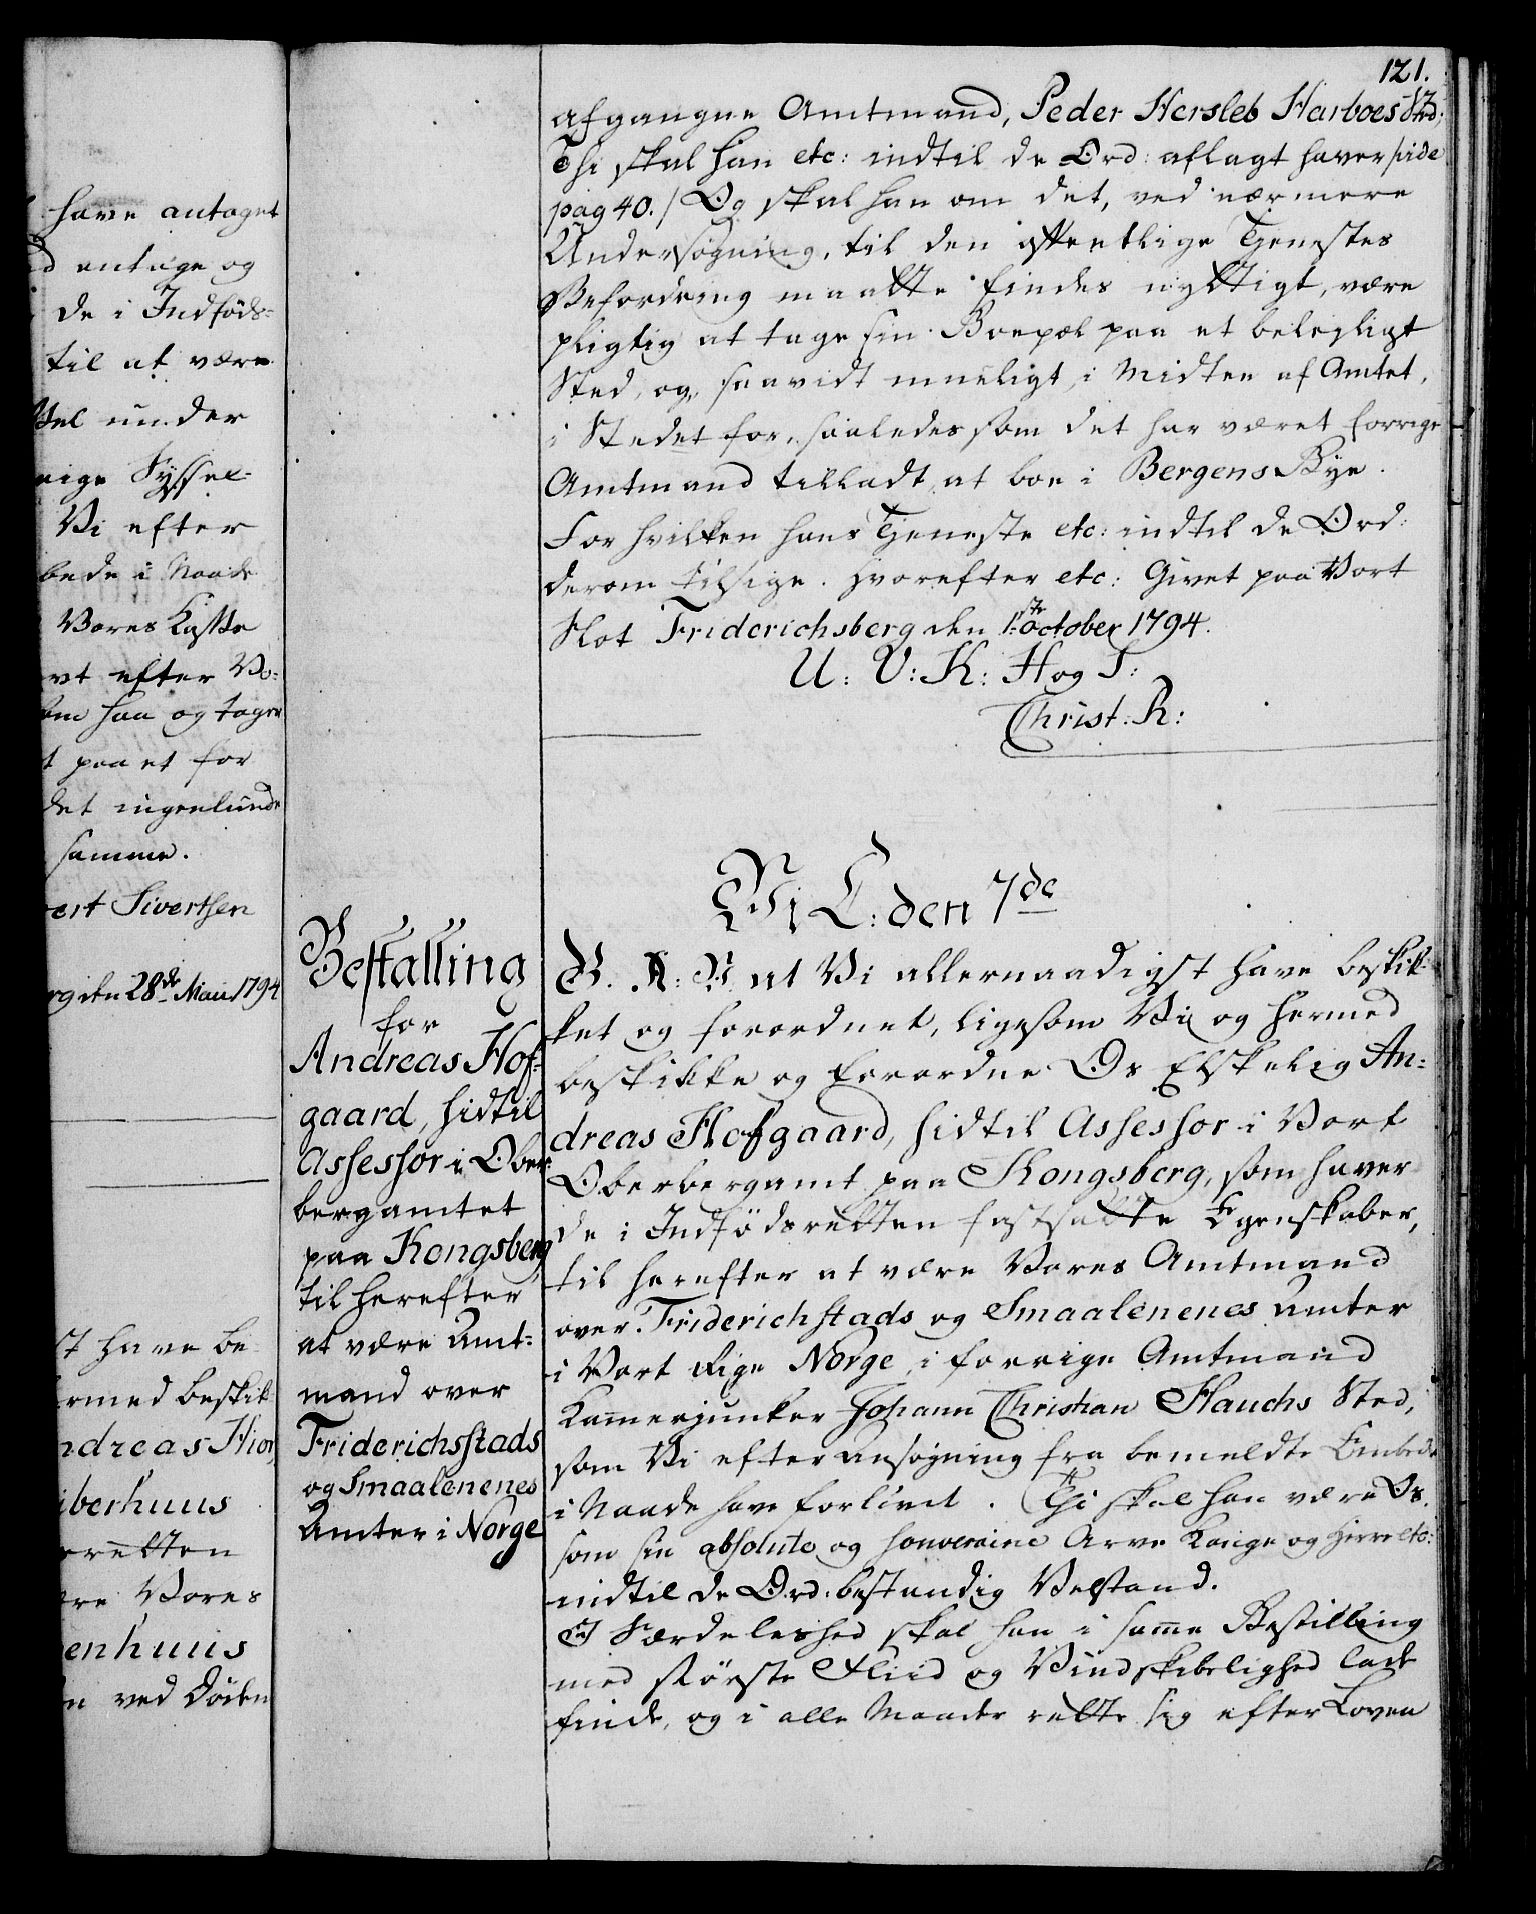 121.
afgangne Amtmand, Peder Hersleb Harboes Sted;
Thi skal han etc: indtil de Ord: aflagt haver /vide
pag 40./ Og skal han om det, ved nærmere
Undersøgning, til den offentlige Tjenestes
Befordring maatte findes nyttigt, være
pligtig at tage sin Boepæl paa et beleyligt
Sted, og, saavidt mueligt, i Midten af Amtet,
i Stedet for, saaledes som det har været forrige
Amtmand tilladt, at boe i Bergens Bye.
For hvilken hans Tjeneste etc: indtil de Ord:
derom tilsige. Hvorefter etc: Givet paa Vort
Slot Friderichsberg den 1ste October 1794.
U: V: K: H og S:
Christ: R:
Vi C: den 7de
Bestalling
for
Andreas Hof-
gaard, hidtil
Assessor i Ober-
bergamtet
paa Kongsberg,
til herefter
at være Amt-
mand over
Friderichsstads
og Smaalenenes
Amter i Norge
G. A: V. at Vi allernaadigst have beskik-
ket og forordnet, ligesom Vi og hermed
beskikke og forordne Os Elskelig An-
dreas Hofgaard, hidtil Assessor i Vort
Oberbergamt paa Kongsberg, som haver
de i Indfødsretten fastsatte Egenskaber,
til herefter at være Vores Amtmand
over Friderichstads og Smaalenenes Amter
i Vort Rige Norge, i forrige Amtmand
Kammerjunker Johann Christian Hauchs Sted,
som Vi efter Ansøgning fra bemeldte Embede
i Naade have forlovet. Thi skal han være Os,
som sin absolute og souveraine Arve Konge og Herre etc:
indtil de Ord: bestandig Velstand.
I Særdeleshed skal han i samme Bestilling
med største Fliid og Vindskibelighed lade
finde, og i alle Maader rette sig efter Loven
have antaget
antage og
de i Indføds-
til at være
under
Syssel-
Vi efter
bede i Naade
Vores Kasse
efter Vo-
han og tage
paa et for
det ingenlunde
samme.
ert Sivertsen
rg den 28de Maii 1794
have be-
rmed beskik-
ndreas Hior
iberhuus
retten
re Vores
enhuus
ved Døden